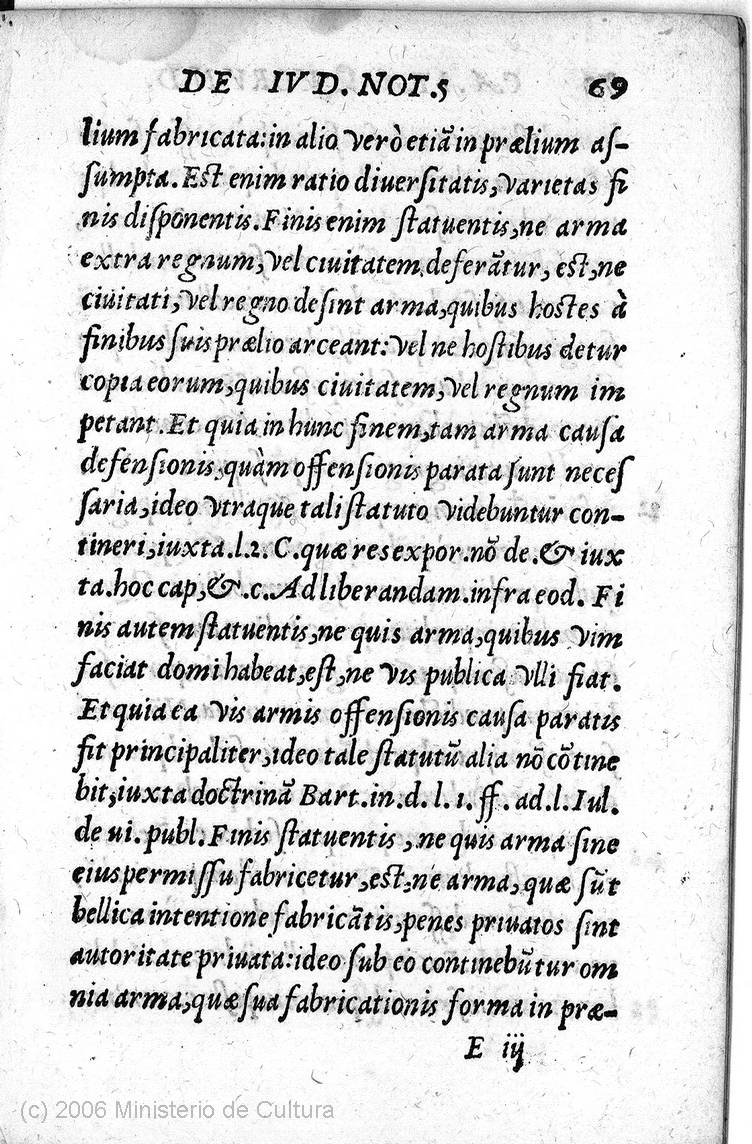 DE IVD. NOT.5 69
lium fabricata: in alio verò etiã in prælium aſ-
ſumpta. Eſt enim ratio diuerſitatis, varietas fi
nis diſponentis. Finis enim ſtatuentis, ne arma
extra regnum, vel ciuitatem deferãtur, eſt, ne
ciuitati, vel regno deſint arma, quibus hoſtes à
finibus ſuis prælio arceant: vel ne hoſtibus detur
copia eorum, quibus ciuitatem, vel regnum im
petant. Et quia in hunc finem, tam arma cauſa
defenſionis, quàm offenſionis parata ſunt neceſ
ſaria, ideo vtraque tali ſtatuto videbuntur con-
tineri, iuxta.l.2. C. quæ res expor. nõ de. & iux
ta. hoc cap, &.c. Ad liberandam. infra eod. Fi
nis autem ſtatuentis, ne quis arma, quibus vim
faciat domi habeat, eſt, ne vis publica vlli fiat.
Et quia ea vis armis offenſionis cauſa paratis
fit principaliter, ideo tale ſtatutũ alia nõ cõtine
bit, iuxta doctrinã Bart. in. d. l. 1. ff. ad. l. Iul.
de ui. publ. Finis ſtatuentis, ne quis arma ſine
eius permiſſu fabricetur, eſt, ne arma, quæ sũt
bellica intentione fabricãtis, penes priuatos ſint
autoritate priuata: ideo ſub eo continebũtur om
nia arma, quæ ſua fabricationis forma in præ-
E iij
(c) 2006 Ministerio de Cultura